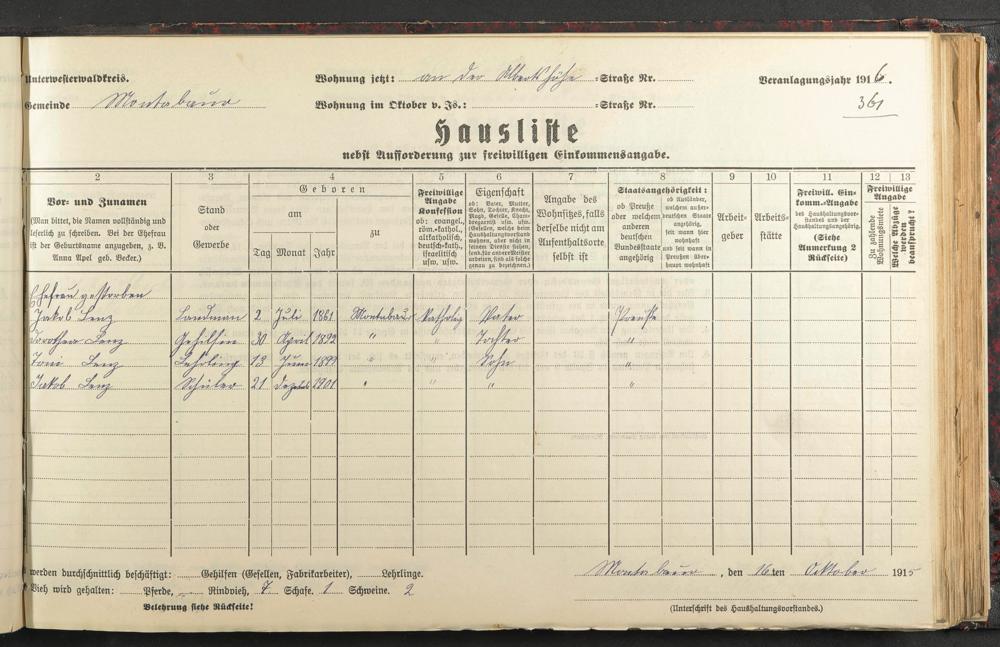 Unterwesterwaldkreis.
Wohnung jetzt: an der Albertshöhe =Straße Nr.
Veranlagungsjahr 1916.
Gemeinde Montabaur
Wohnung im Oktober v. Js.: =Straße Nr.
361
Hausliste
nebst Aufforderung zur freiwilligen Einkommensangabe.
2 3 4 5 6 7 8 9 10 11 12 13
Vor- und Zunamen
(Man bittet, die Namen vollständig und
leserlich zu schreiben. Bei der Ehefrau
ist der Geburtsname anzugeben, z. B.
Anna Apel geb. Becker.)
Stand
oder
Gewerbe
Geboren
am
zu
Tag Monat Jahr
Freiwillige
Angabe
Konfession
ob: evangel.,
röm.-kathol.,
altkatholisch,
deutsch-kath.,
israelitisch
usw. usw.
Eigenschaft
ob: Vater, Mutter,
Sohn, Tochter, Knecht,
Magd, Geselle,
Angabe des
Wohnsitzes, falls
derselbe nicht am
Aufenthaltsorte
selbst ist
Staatsangehörigkeit:
ob Preuße
oder welchem
anderen
deutschen
Bundesstaate
angehörig
ob Ausländer,
welchem außer-
deutschen Staate
angehörig,
seit wann hier
wohnhaft
und seit wann in
Preußen über-
haupt wohnhaft
Arbeit-
geber
Arbeits-
stätte
Freiwill. Ein-
komm.-Angabe
des Haushaltungsvor-
standes und der
Haushaltungsangehörig.
(Siehe
Anmerkung 2
Rückseite)
Freiwillige
Angabe
Zu zahlende
Wohnungsmiete
Welche Abzüge
werden
beansprucht?
Ehefrau gestorben
Jakob Lenz Landman 2 Juli 1861 Montabaur katholig Vater Preuße
Dorothea Lenz Gehilfin 30 April 1892 " " Tochter "
Toni Lenz Lehrling 13 Juni 1899 " " Sohn "
Jakob Lenz Schüler 21 Dezemb 1901 " " " "
werden durchschnittlich beschäftigt: Gehilfen (Gesellen, Fabrikarbeiter), Lehrlinge.
Vieh wird gehalten: Pferde, Rindvieh, 7 Schafe. 1 Schweine. 2
Belehrung siehe Rückseite!
Montabaur, den 16ten Oktober 1915
(Unterschrift des Haushaltungsvorstandes.)